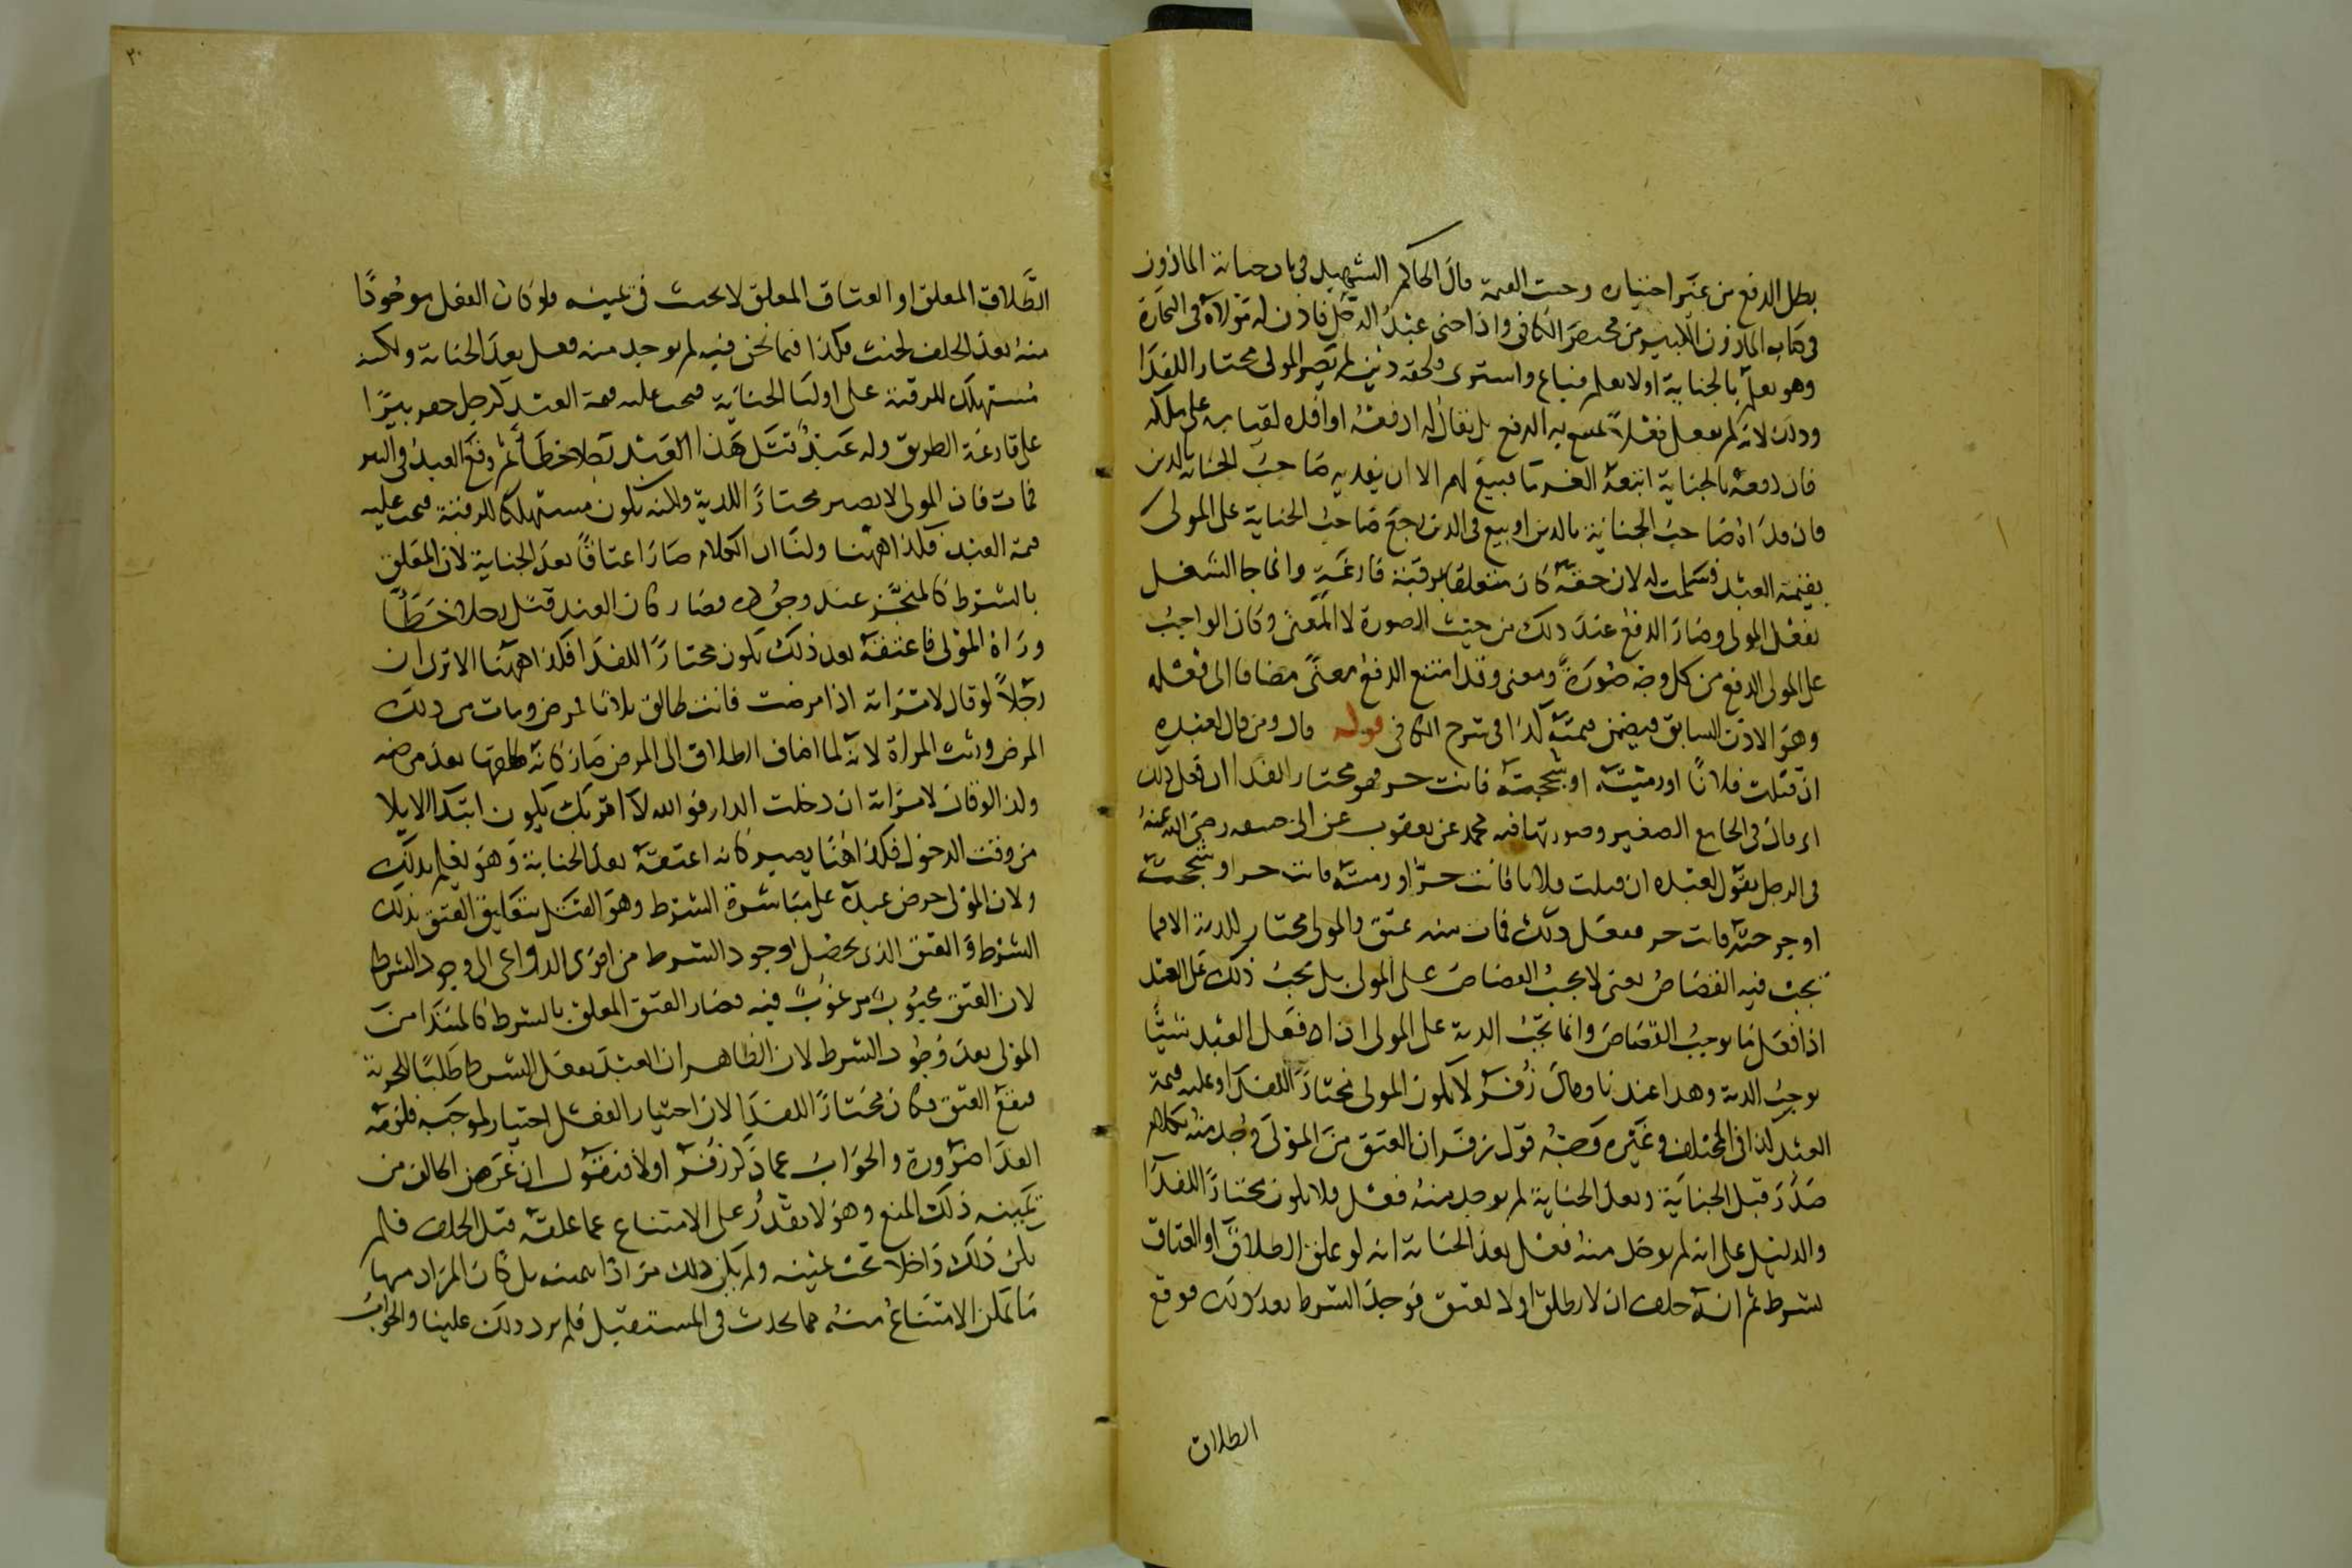 بطل الدفع من غير اختياره وجبت القيمة قال الحاكم الشهيد في باب جناية الماذون
في كتاب الماذون الكبير من مختصر الكافي واذا جنى عبد الرجل فاذن له مولاه في التجارة
وهو يعلم بالجناية اولا يعلم فباع واشترى ولحقه دين لم يصر المولى مختارا للفداء
وذلك لانه لم يفعل فعلا يمنع به الدفع بل يقال له ادفعه او افده لقيامه على ملكه
فان دفعه بالجناية اتبعه الغرماء فبيع لهم الا ان يفديه صاحب الجناية بالدين
فان فداه صاحب الجناية بالدين او بيع في الدين رجع صاحب الجناية على المولى
بقيمة العبد فسلمت له لان حقه كان متعلقا برقبة فارغة وانما جا الشغل
بفعل المولى وصار الدفع عند ذلك من حيث الصورة لا المعنى وكان الواجب
على المولى الدفع من كل وجه صورة ومعنى وقد امتنع الدفع معنى مضافا الى فعله
وهو الاذن السابق فيضمن قيمته كذا في شرح الكافي قوله قال ومن قال لعبده
ان قتلت فلانا او رميته او شججته فانت حر فهو مختار الفدا ان فعل ذلك
اى قال في الجامع الصغير وصورتها فيه محمد عن يعقوب عن ابي حنيفة رضي الله عنه
في الرجل يقول لعبده ان قتلت فلانا فانت حر او رميته فانت حر او شججته
او جرحته فانت حر ففعل ذلك فمات منه عتق والمولى مختار للدية الا فيما
يجب فيه القصاص يعني لا يجب القصاص على المولى بل يجب ذلك على العبد
اذا فعل ما يوجب القصاص وانما تجب الدية على المولى ان اذا فعل العبد شيئا
يوجب الدية وهذا عندنا وقال زفر لا يكون المولى مختارا للفدا وعليه قيمة
العبد كذا في المختلف وغيره وجه قول زفر ان العتق من المولى وجد منه بكلام
صدر قبل الجناية وبعد الجناية لم يوجد منه فعل فلا يكون مختارا للفدا
والدليل على انه لم يوجد منه فعل بعد الجناية انه لو علق الطلاق او العتاق
بشرط ثم انه حلف ان لا يطلق او لا يعتق فوجد الشرط بعد ذلك فوقع
الطلاق
٣٠
الطلاق المعلق او العتاق المعلق لا يحنث في يمينه ولو كان الفعل موجودا
منه بعد الحلف لحنث فكذا فيما نحن فيه لم يوجد منه فعل بعد الجناية ولكنه
مستهلك للرقبة على اوليا الجناية فيجب عليه قيمة العبد كرجل حفر بيرا
على قارعة الطريق وله عبد قتل هذا العبد رجلا خطا ثم وقع العبد في البير
فمات فان المولى لا يصير مختارا للدية ولكنه يكون مستهلكا للرقبة فيجب عليه
قيمة العبد فكذا ههنا ولنا ان الكلام صار اعتاقا بعد الجناية لان المعلق
بالشرط كالمنجز عند وجوده فصار كان العبد قتل رجلا خطا
وراه المولى فاعتقه بعد ذلك يكون مختارا للفدا فكذا ههنا الا ترى ان
رجلا لو قال لامراته اذا مرضت فانت طالق ثلاثا فمرض ومات من ذلك
المرض ورثت المراة لانه لما اضاف الطلاق الى المرض صار كانه طلقها بعد مرضه
ولذا لو قال لامراته ان دخلت الدار فوالله لا اقربك يكون ابتدا الايلا
من وقت الدخول فكذا هنا يصير كانه اعتقه بعد الجناية وهو يعلم بذلك
ولان المولى حرض عبده على مباشرة الشرط وهو القتل بتعليق العتق بذلك
الشرط والعتق الذي يحصل لوجود الشرط من اقوى الدواعي الى وجود الشرط
لان العتق محبوب مرغوب فيه فصار العتق المعلق بالشرط كالمبتدا من
المولى بعد وجود الشرط لان الظاهر ان العبد يفعل الشرط طلبا للحرية
فيقع العتق فكان مختارا للفدا لان اختيار الفعل اختيار لموجبه فلزمه
الفدا ضرورة والجواب عما ذكر زفر اولا فنقول ان غرض الحالف من
يمينه ذلك المنع وهو لا يقدر على الامتناع عما علقه قبل الحلف فلم
يكن ذلك داخلا تحت يمينه ولم يكن ذلك مرادا بيمينه بل كان المراد منها
ما يمكن الامتناع منه مما يحدث في المستقبل فلم يرد ذلك علينا والجواب